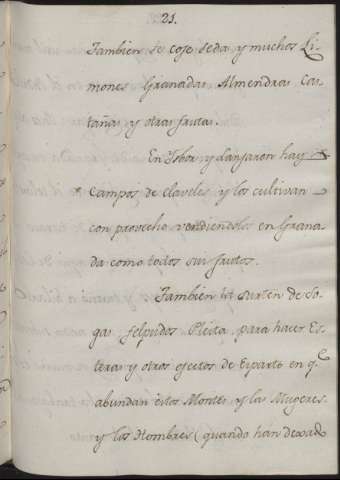 21.
Tambien se coje seda, y muchos Li-
mones Granadas Almendras Cas-
tañas, y otras frutas.
En Ysbor, y Lanjaron hay
Campos de Claveles, y los cultivan
con provecho vendiendolos en Grana-
da como todos sus frutos.
Tambien la surten de So-
gas felpudos Pleita, para hacer Es-
teras y otros efectos de Esparto en q.e
abundan estos Montes, y las Mugeres
y los Hombres (quando han dexado